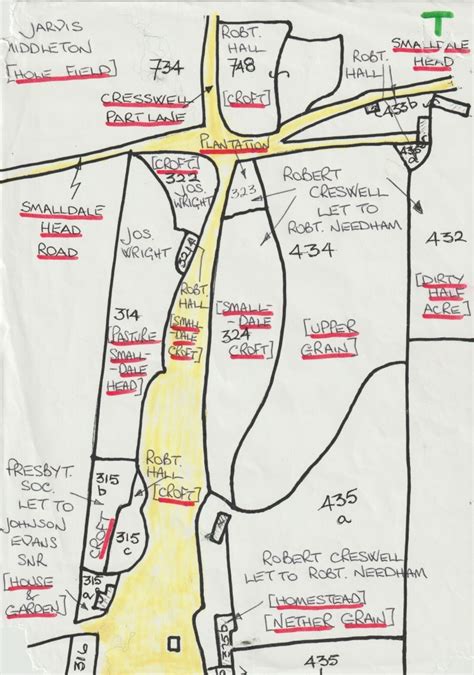 T
JARVIS
MIDDLETON
[HOLE FIELD]
734
ROBT.
HALL
748
[CROFT]
ROBT.
HALL
SMALLDALE
HEAD
CRESSWELL
PART LANE
433b
PLANTATION
435
[CROFT]
322
JOS.
WRIGHT
323
ROBERT
CRESWELL
LET TO
ROBT. NEEDHAM
434
432
[DIRTY
HALF
ACRE]
SMALLDALE
HEAD
ROAD
JOS.
WRIGHT
321a
ROBT.
HALL
[SMALL-
DALE
CROFT]
314
[PASTURE
SMALL-
DALE
HEAD]
[SMALL-
DALE
324
CROFT]
[UPPER
GRAIN]
PRESBYT.
SOC.
LET TO
JOHNSON
EVANS
SNR
[HOUSE
&
GARDEN]
315
b
ROBT.
HALL
[CROFT]
CROFT
315
c
315
a
435
a
ROBERT CRESWELL
LET TO ROBT. NEEDHAM
[HOMESTEAD]
[NETHER GRAIN]
316
435